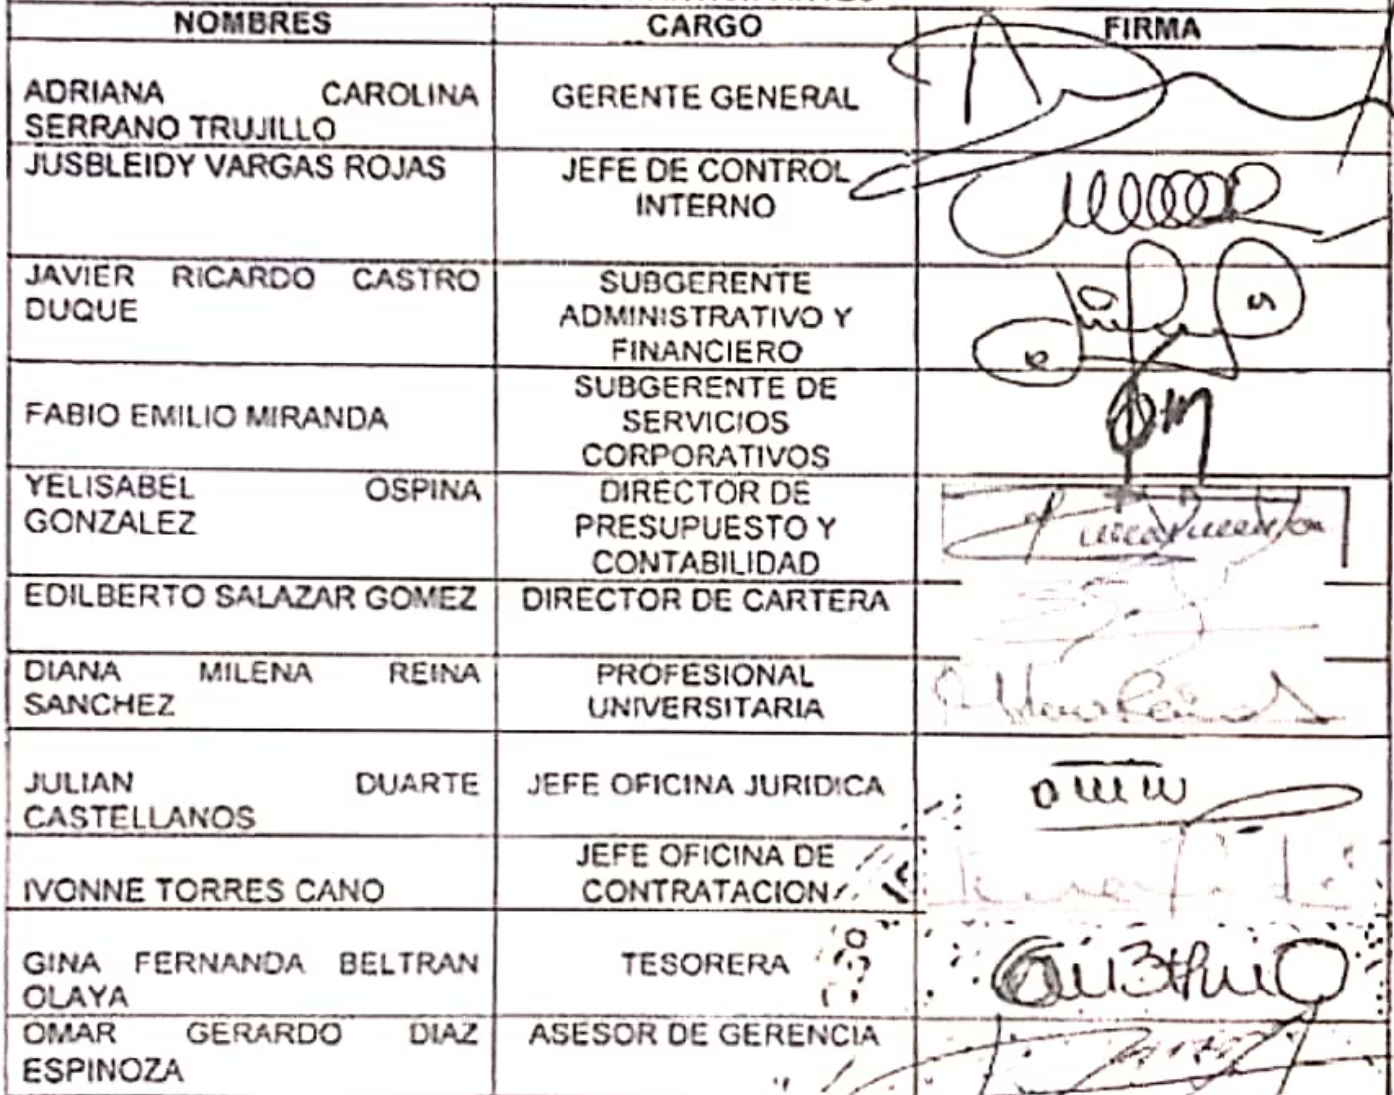 NOMBRES CARGO FIRMA
ADRIANA CAROLINA
SERRANO TRUJILLO
GERENTE GENERAL
JUSBLEIDY VARGAS ROJAS
JEFE DE CONTROL
INTERNO
JAVIER RICARDO CASTRO
DUQUE
SUBGERENTE
ADMINISTRATIVO Y
FINANCIERO
FABIO EMILIO MIRANDA
SUBGERENTE DE
SERVICIOS
CORPORATIVOS
YELISABEL OSPINA
GONZALEZ
DIRECTOR DE
PRESUPUESTO Y
CONTABILIDAD
EDILBERTO SALAZAR GOMEZ
DIRECTOR DE CARTERA
DIANA MILENA REINA
SANCHEZ
PROFESIONAL
UNIVERSITARIA
JULIAN DUARTE
CASTELLANOS
JEFE OFICINA JURIDICA
IVONNE TORRES CANO
JEFE OFICINA DE
CONTRATACION
GINA FERNANDA BELTRAN
OLAYA
TESORERA
OMAR GERARDO DIAZ
ESPINOZA
ASESOR DE GERENCIA